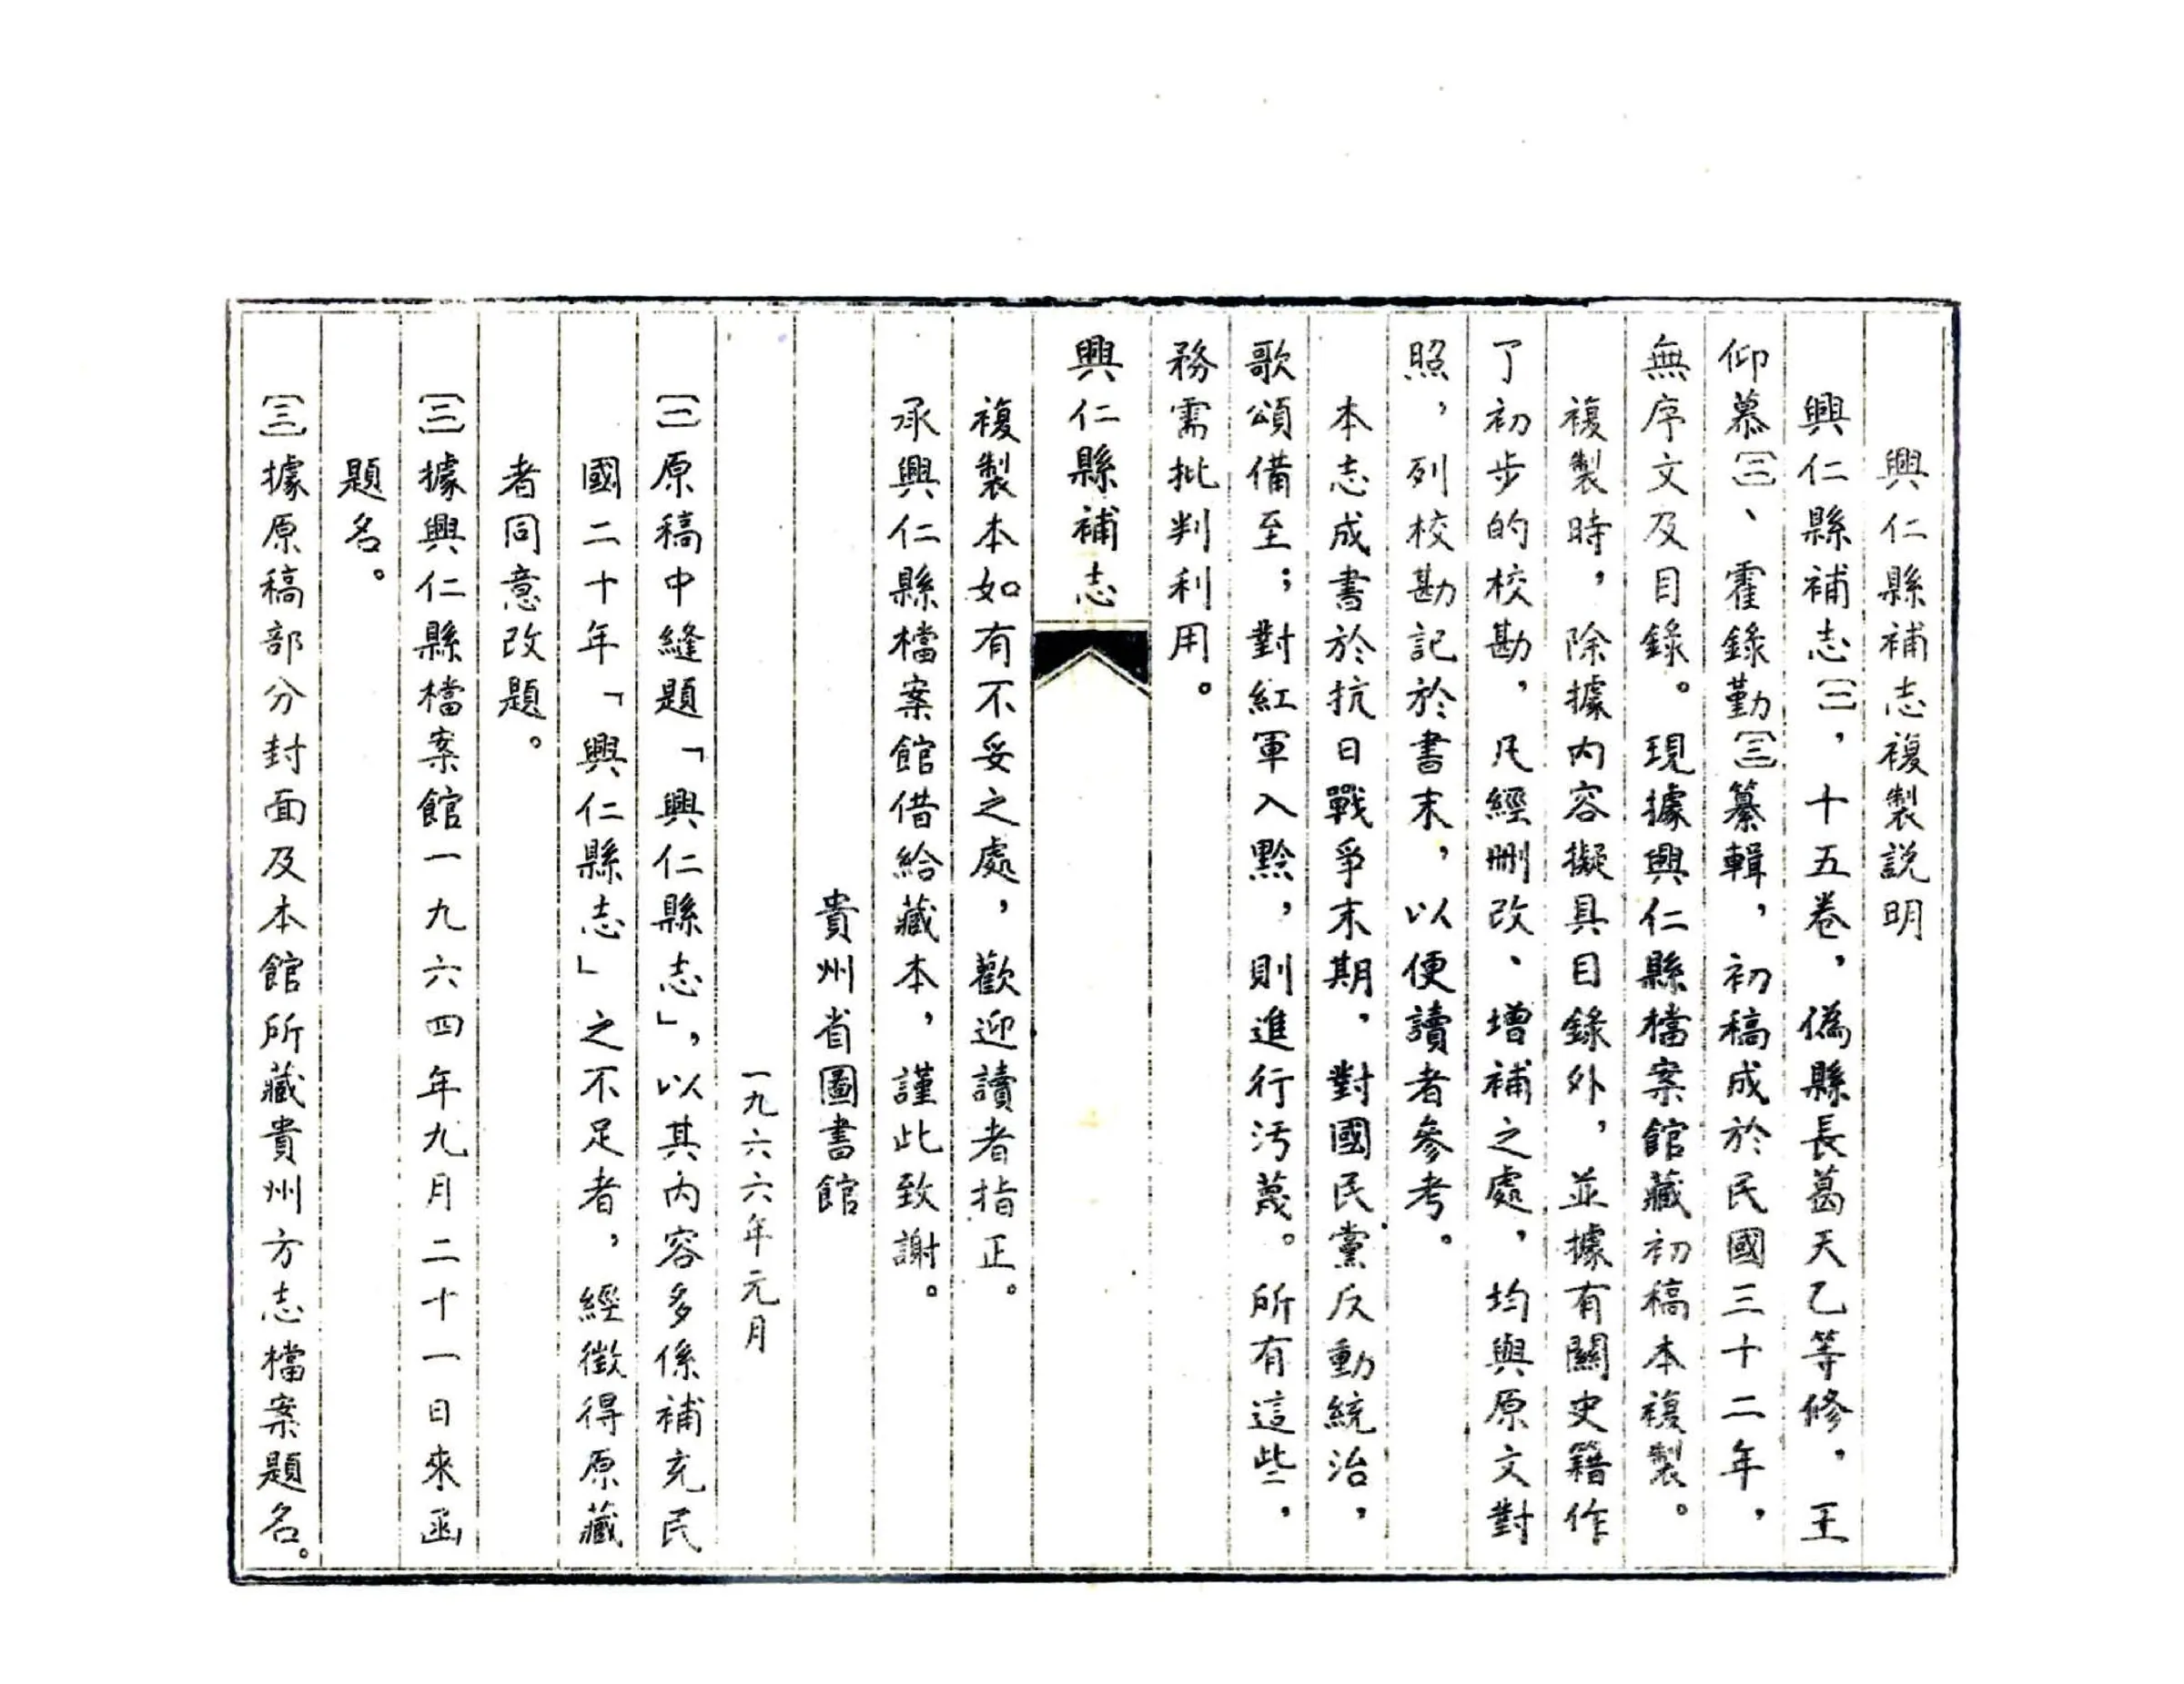 興仁縣補志複製説明
興仁縣補志〔一〕，十五卷，偽縣長葛天乙等修，王
仰慕〔二〕、霍錄勤〔三〕纂輯，初稿成於民國三十二年，
無序文及目錄。現據興仁縣檔案館藏初稿本複製。
複製時，除據內容擬具目錄外，並據有關史籍作
了初步的校勘，凡經刪改、增補之處，均與原文對
照，列校勘記於書末，以便讀者參考。
本志成書於抗日戰爭末期，對國民黨反動統治，
歌頌備至；對紅軍入黔，則進行污蔑。所有這些，
務需批判利用。
興仁縣補志
複製本如有不妥之處，歡迎讀者指正。
承興仁縣檔案館借給藏本，謹此致謝。
貴州省圖書館
一九六六年元月
〔一〕原稿中縫題「興仁縣志」，以其內容多係補充民
國二十年「興仁縣志」之不足者，經徵得原藏
者同意改題。
〔二〕據興仁縣檔案館一九六四年九月二十一日來函
題名。
〔三〕據原稿部分封面及本館所藏貴州方志檔案題名。